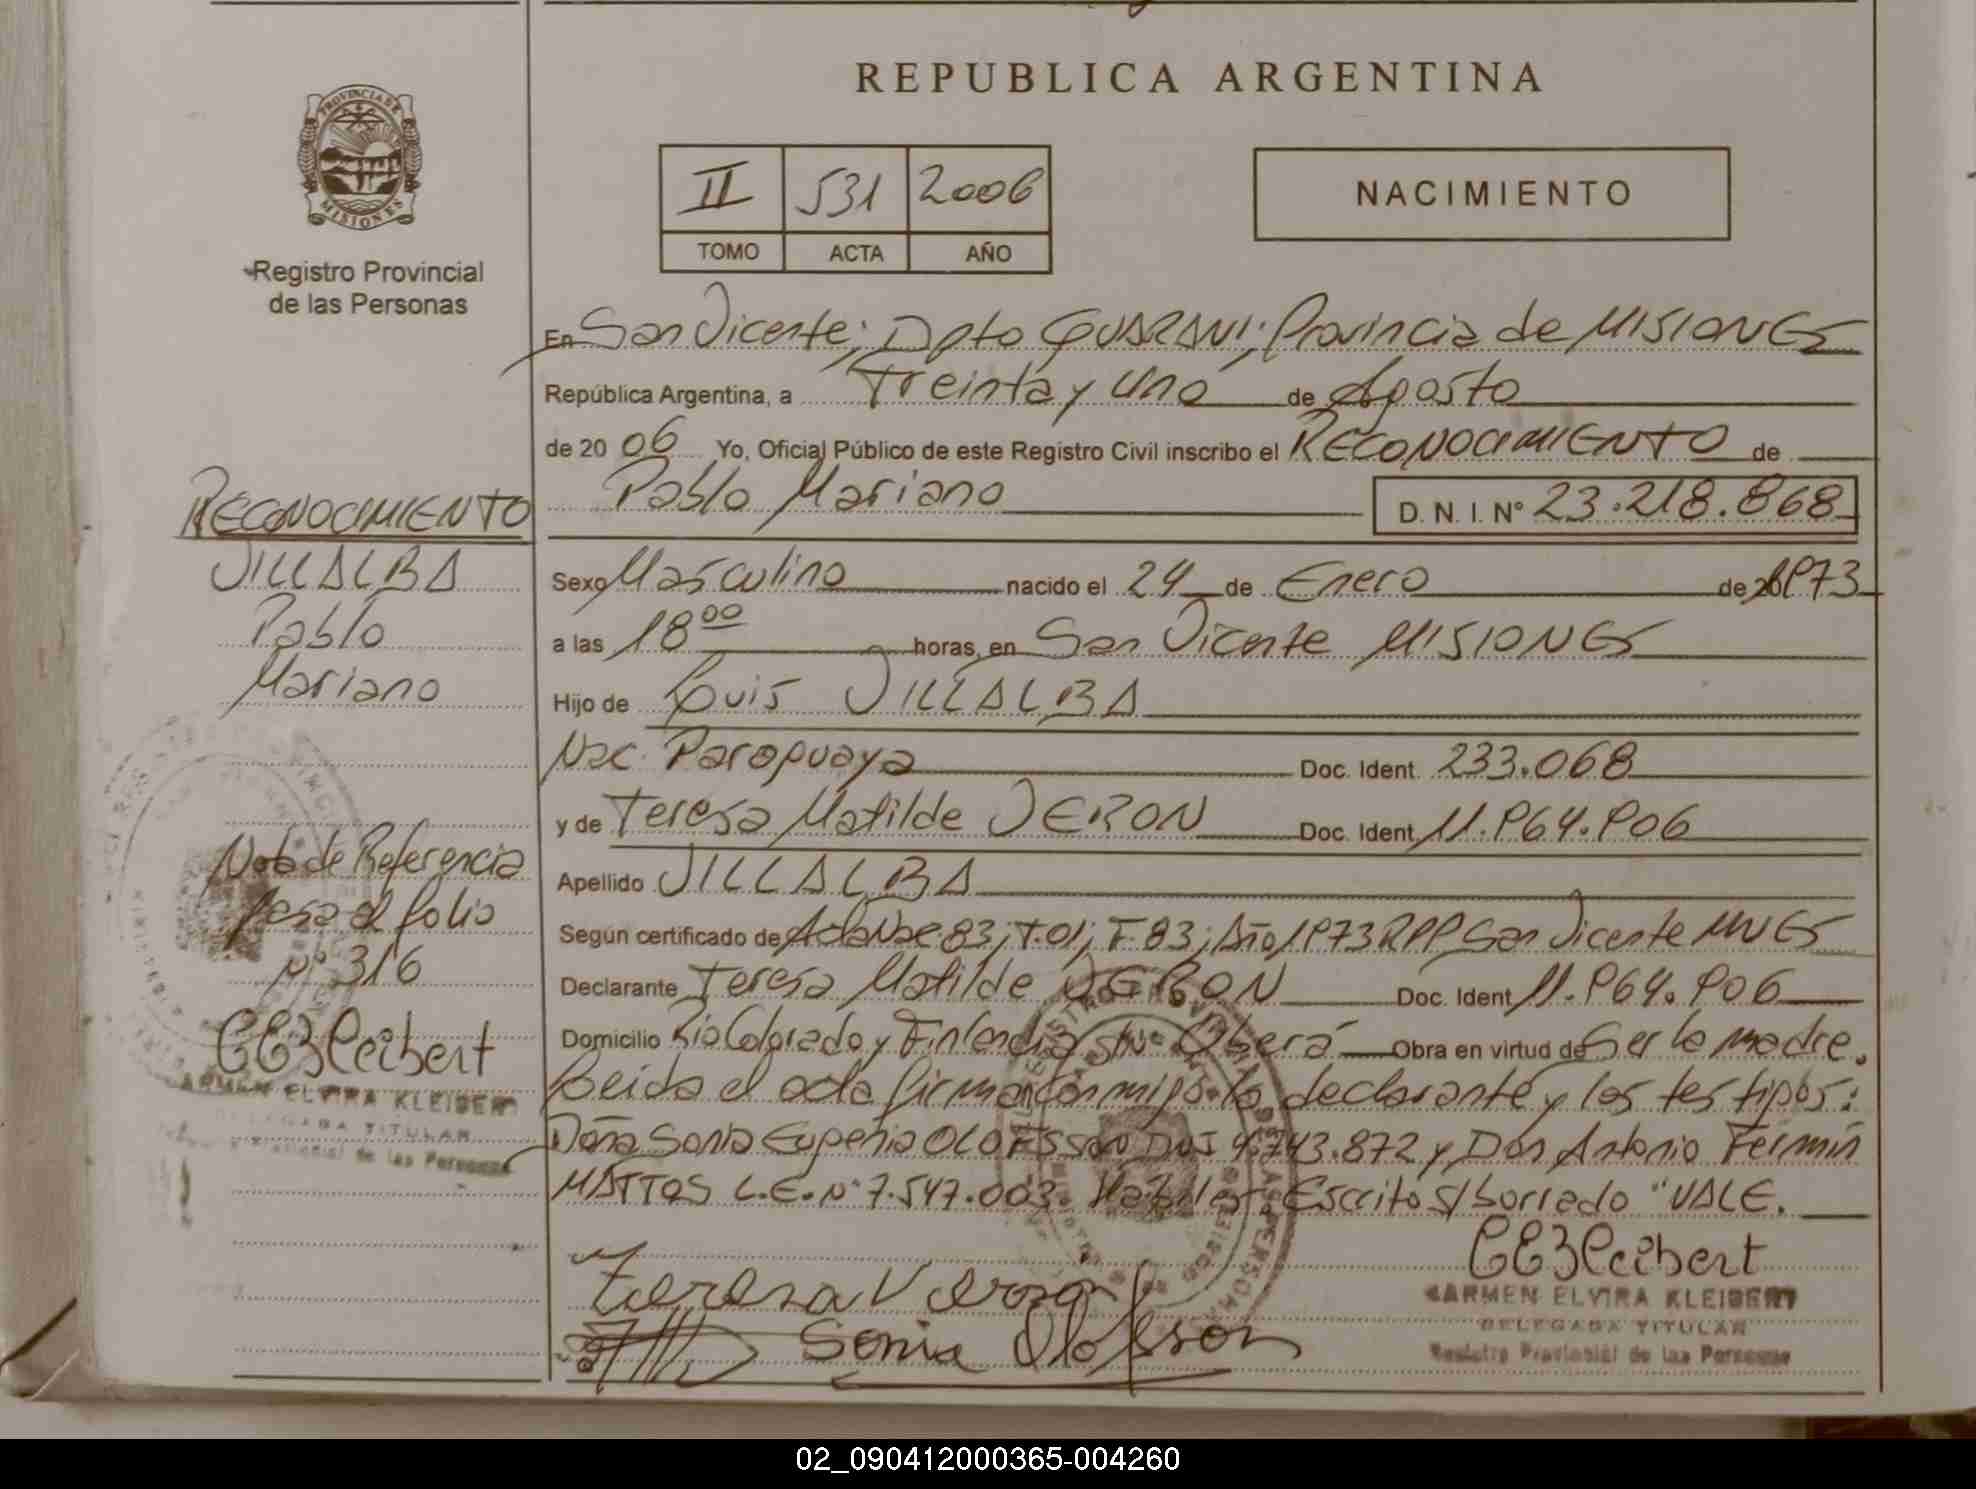 REPUBLICA ARGENTINA
PROVINCIA DE
MISIONES
Registro Provincial
de las Personas
II 531 2006
TOMO ACTA AÑO
NACIMIENTO
En San Vicente; Dpto GUARANI; Provincia de MISIONES
República Argentina, a Treinta y uno de Agosto
de 2006 Yo, Oficial Público de este Registro Civil inscribo el RECONOCIMIENTO de
Pablo Mariano D. N. I. N° 23.218.868
Sexo Masculino nacido el 24 de Enero de 1973
a las 18 00 horas, en San Vicente MISIONES
Hijo de Luis VILLALBA
Nac. Paraguaya Doc. Ident. 233.068
y de Teresa Matilde VERON Doc. Ident. 11.964.906
Apellido VILLALBA
Según certificado de Acta Nac 83; T.01; F.83; Año 1973 RPP San Vicente MNES
Declarante Teresa Matilde VERON Doc. Ident 11.964.906
Domicilio Rio Colorado y Finlandia s/n° Oberá Obra en virtud de Ser la madre.
Leida el acta firman conmigo la declarante y los testigos:
Doña Sonia Eugenia OLOFSSON DNI 4.743.872 y Don Antonio Fermín
MATTOS L.E. N° 7.547.003. Habiles. Escrito s/borrado "VALE.
Teresa Veron
Sonia Olofsson
CEKleibert
CARMEN ELVIRA KLEIBERT
DELEGADA TITULAR
Registro Provincial de las Personas
RECONOCIMIENTO
VILLALBA
Pablo
Mariano
Nota de Referencia
Pasa al folio
N° 316
CEKleibert
CARMEN ELVIRA KLEIBERT
DELEGADA TITULAR
Registro Provincial de las Personas
02_090412000365-004260